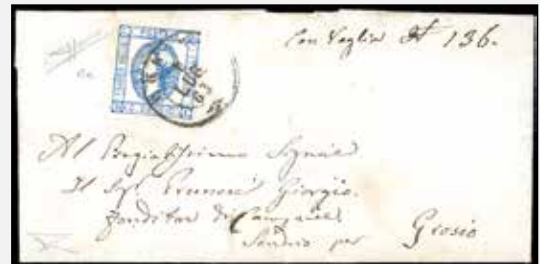 Con Vaglia N 136.
LUG
63
Al Pregiatissimo Signore
Il Sigr Pruneri Giorgio.
Fonditor di Campane
Sondrio per Grosio